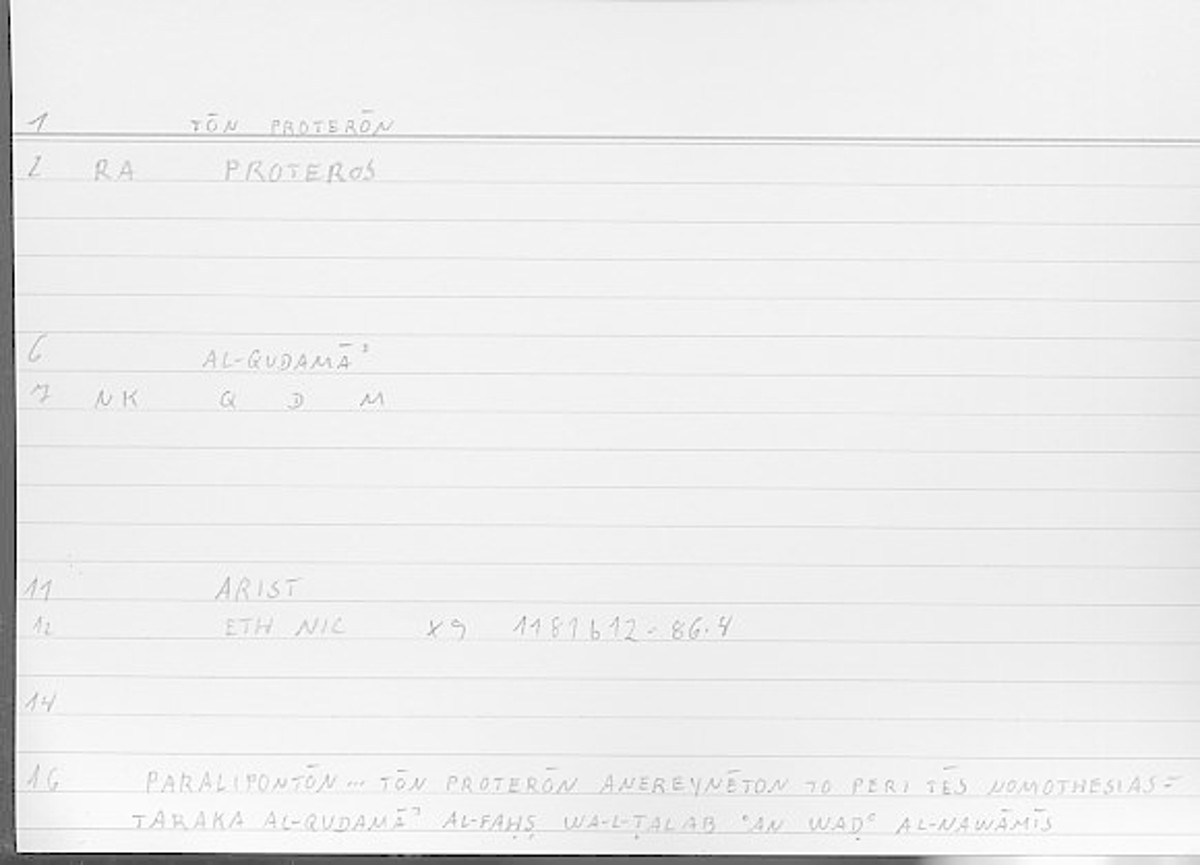 1 TŌN PROTERŌN
2 RA PROTEROS
6 AL-QUDAMĀʾ
7 NK Q D M
11 ARIST
12 ETH NIC X9 1181b12-86.4
14
16 PARALIPONTŌN... TŌN PROTERŌN ANEREYNĒTON TO PERI TĒS NOMOTHESIAS =
TARAKA AL-QUDAMĀʾ AL-FAḤṢ WA-L-ṬALAB ʿAN WAḌʿ AL-NAWĀMĪS